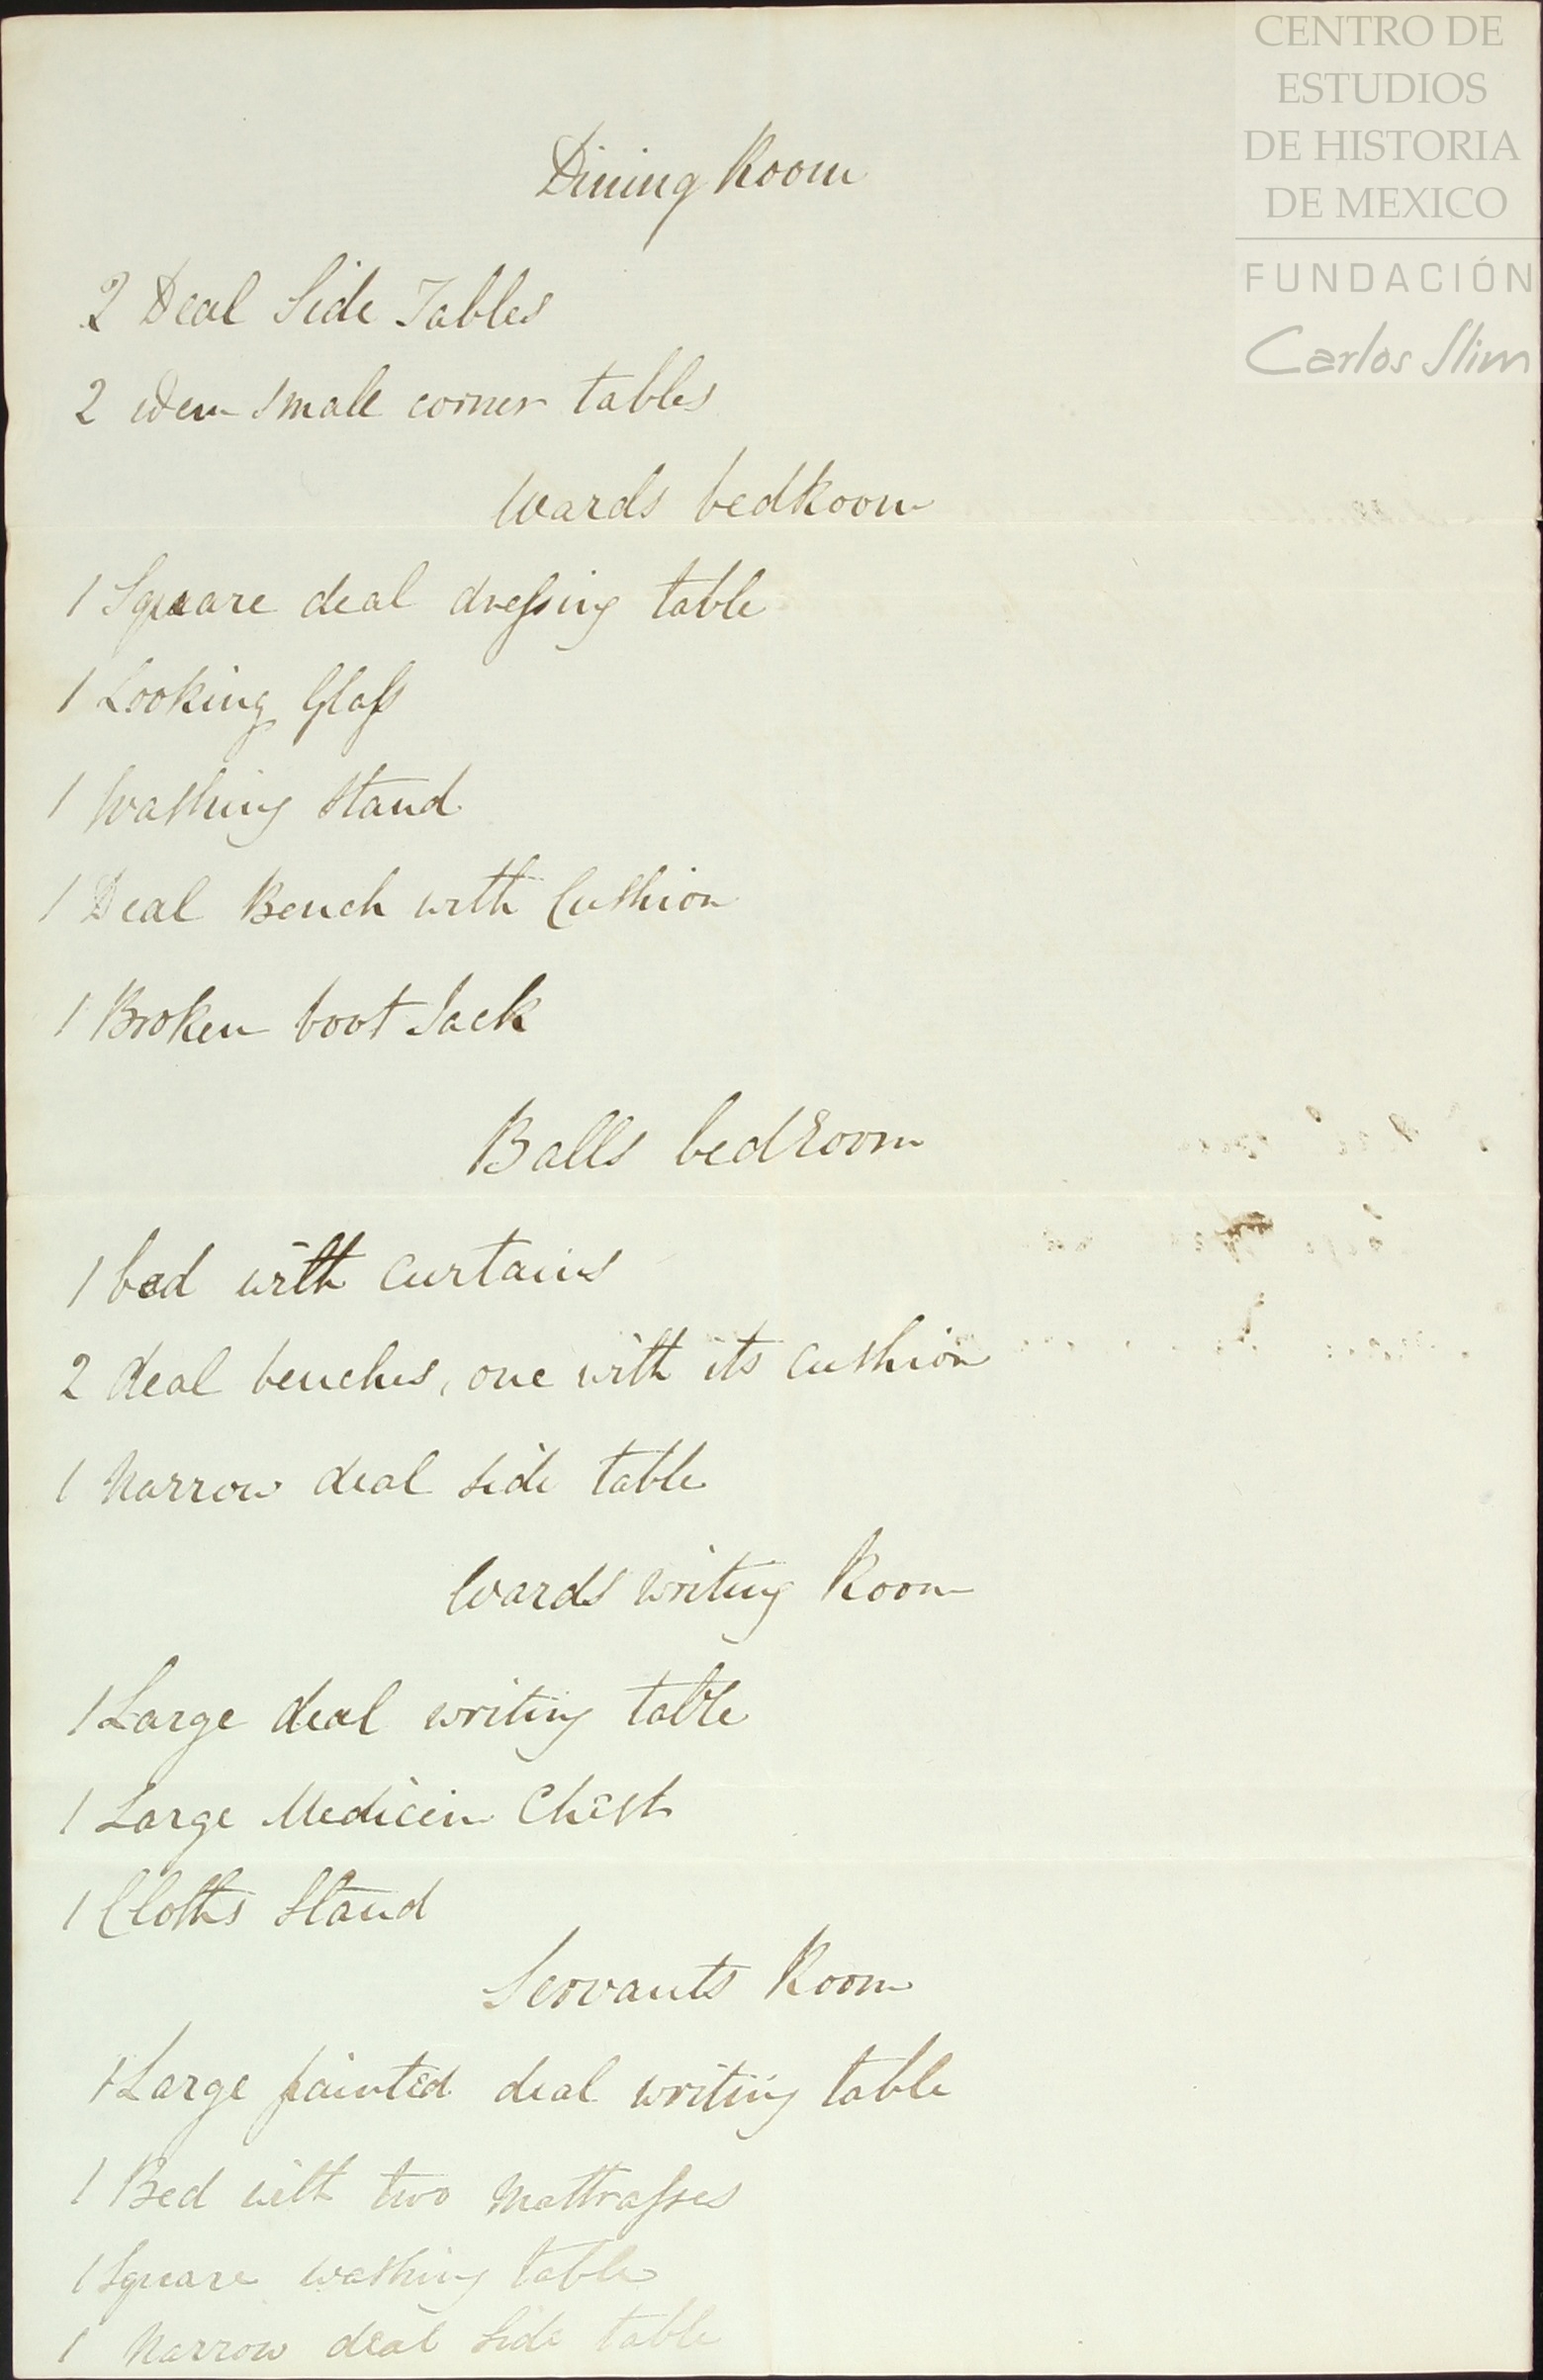 CENTRO DE
ESTUDIOS
DE HISTORIA
DE MEXICO
FUNDACIÓN
Carlos Slim
Dining Room
2 Deal Side Tables
2 idem small corner tables
Wards bedRoom
1 Square deal dressing table
1 Looking Glass
1 Washing Stand
1 Deal Bench with Cushion
1 Broken boot Jack
Balls bedroom
1 bed with curtains
2 deal benches, one with its cushion
1 Narrow deal side table
Wards writing Room
1 Large deal writing table
1 Large Medicin Chest
1 Cloths Stand
Servants Room
1 Large painted deal writing table
1 Bed with two Mattrasses
1 Square washing table
1 Narrow deal Side table